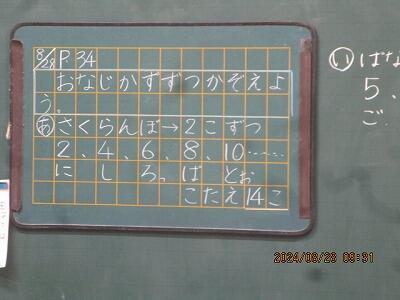 8/28 P.34
おなじかずずつかぞえよ
う。
あ さくらんぼ→2こずつ
2、4、6、8、10……
にしろっぱとお
こたえ14こ
い ばな
5、
ご
2024/08/28 09:31